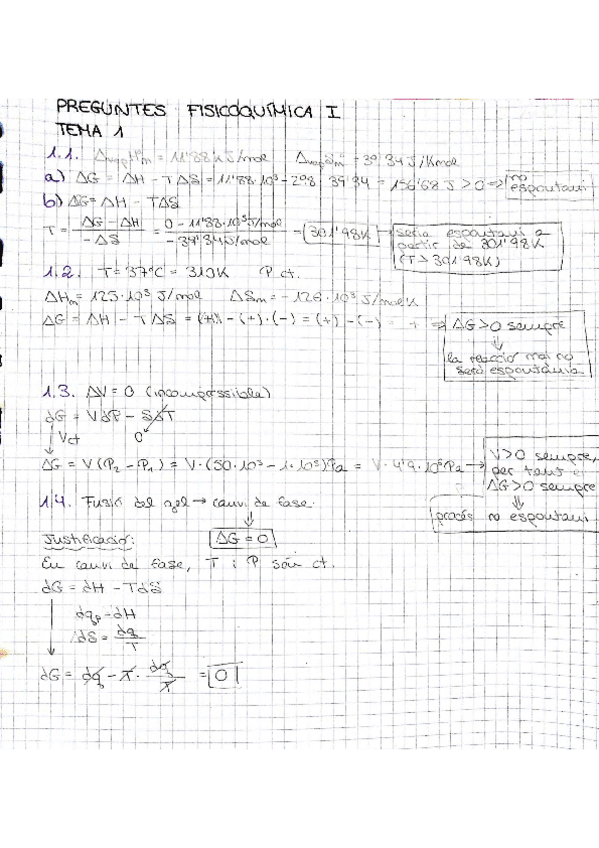 PREGUNTES FISICOQUÍMICA I
TEMA 1
1.1. ΔvapHºm = 11'88 kJ/mol ΔvapSºm = 39'34 J/Kmol
a) ΔG = ΔH - TΔS = 11'88·10³ - 298·39'34 = 156'68 J > 0 => no espontani
b) ΔG = ΔH - TΔS
T = ΔG - ΔH / -ΔS = 0 - 11'88·10³ J/mol / -39'34 J/mol = 301'98K → seria espontani a partir de 301'98K (T > 301'98K)
1.2. T = 37ºC = 310K P ct.
ΔHm = 125·10³ J/mol ΔSm = -126·10³ J/molK
ΔG = ΔH - TΔS = (+) - (+)·(-) = (+) - (-) = + => ΔG > 0 sempre
⇓
la reacció mai no serà espontània
1.3. ΔV = 0 (incompressible)
dG = VdP - SdT
↓ Vct 0
ΔG = V(P₂ - P₁) = V·(50·10⁵ - 1·10⁵)Pa = V·4'9·10⁶Pa → V > 0 sempre, per tant ΔG > 0 sempre
⇓
procés no espontani
1.4. Fusió del gel → canvi de fase.
↓
ΔG = 0
Justificació:
En canvi de fase, T i P són ct.
dG = dH - TdS
dqp = dH
dS = dq/T
dG = dq - T · dq/T = 0